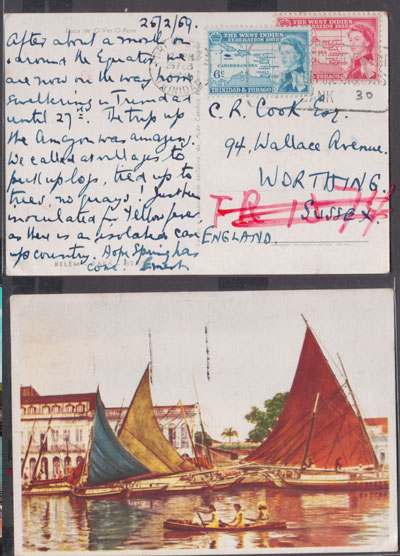 25/2/59.
After about a month on
around the Equator
are now on the way home
until 27th. The trip up
the Amazon was amazing.
We called at villages to
pick up logs, tied up to
trees, no quays! Just been
inoculated for Yellow fever
as there is an isolated case
up country. Hope Spring has
come. Ernest
BELÉM
THE WEST INDIES
FEDERATION 1958
CARIBBEAN SEA
6c
TRINIDAD & TOBAGO
THE WEST INDIES
FEDERATION 1958
TOBAGO
TRINIDAD
30
C. R. Cook Esq.
94, Wallace Avenue,
WORTHING.
SUSSEX.
ENGLAND.